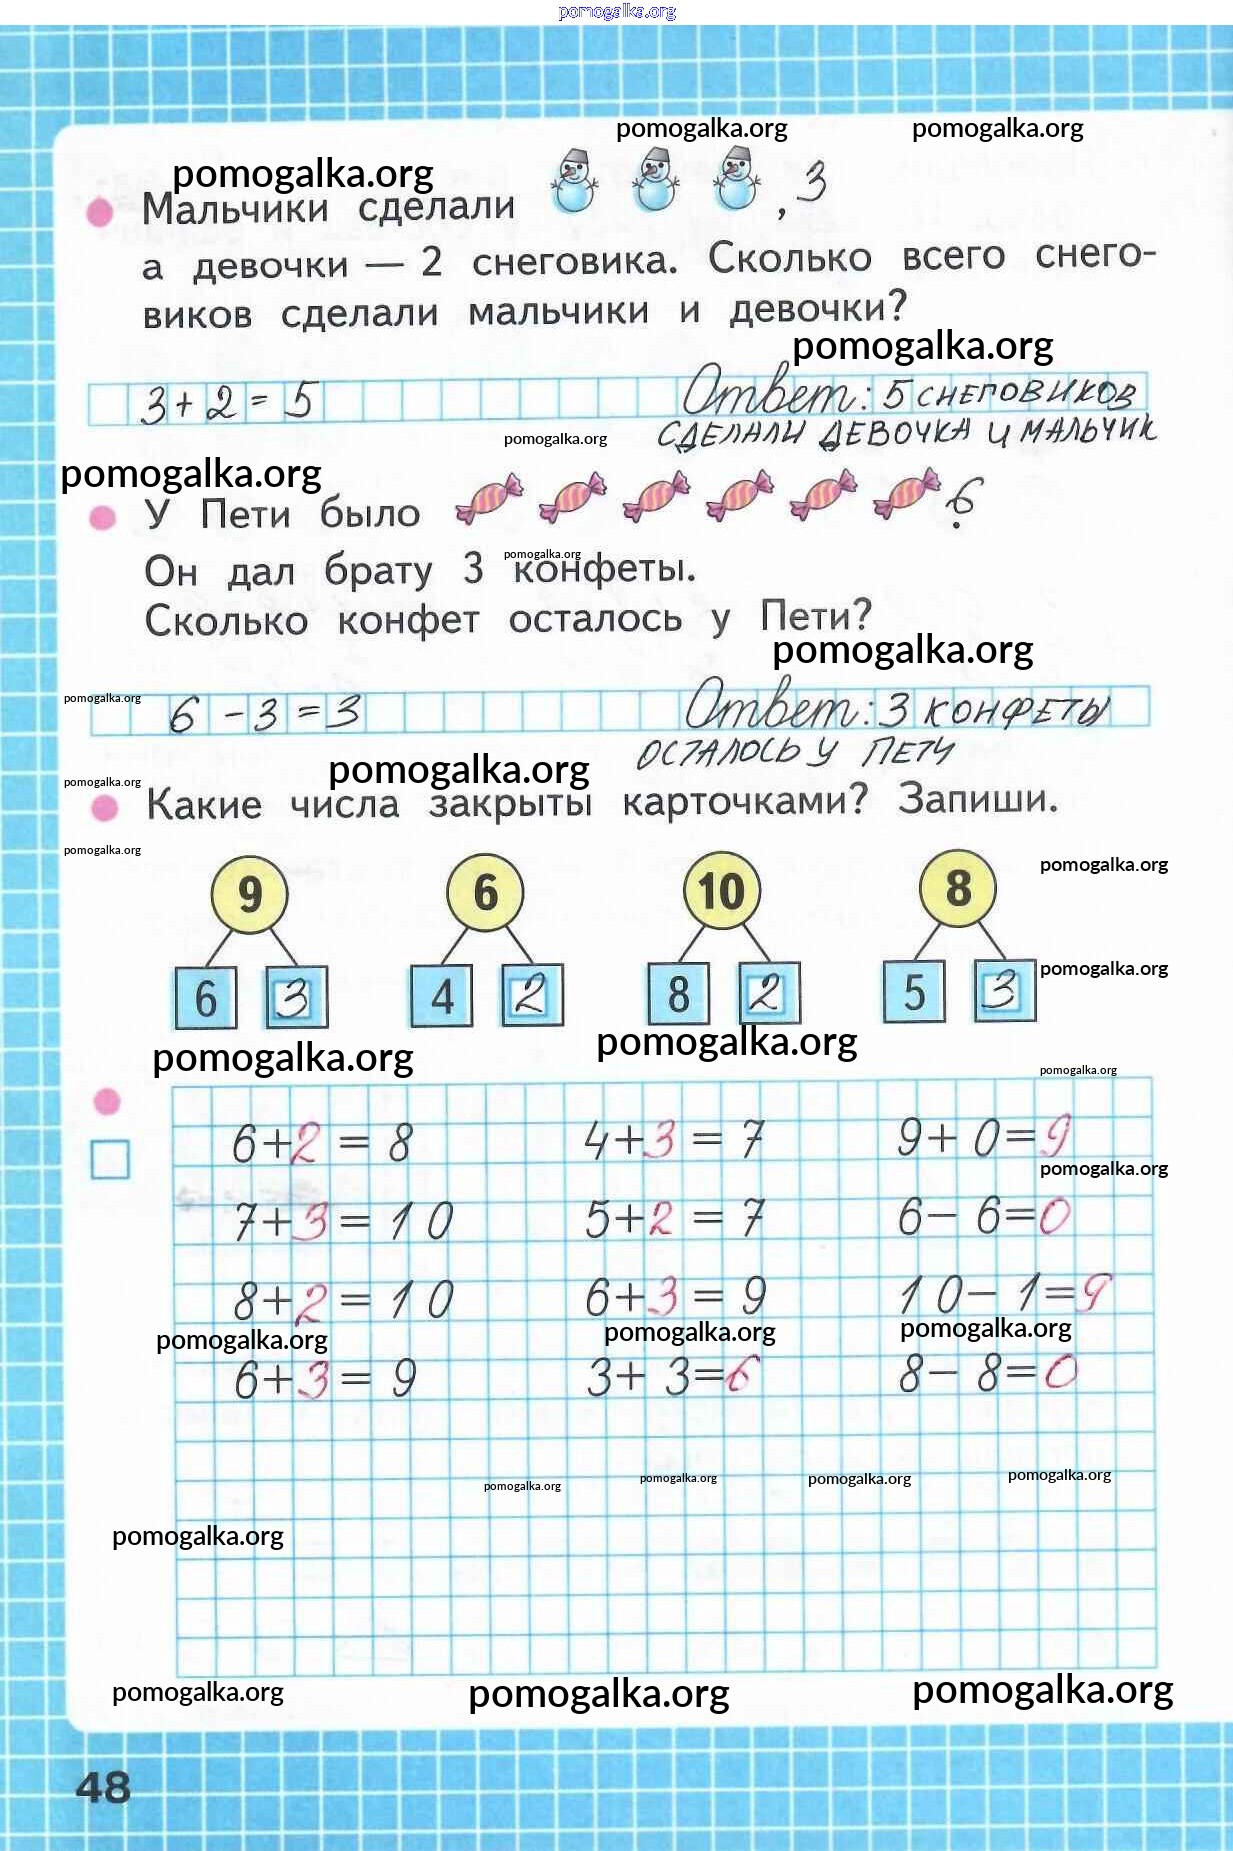 pomogalka.org
pomogalka.org pomogalka.org
pomogalka.org
Мальчики сделали , 3
а девочки — 2 снеговика. Сколько всего снего-
виков сделали мальчики и девочки?
pomogalka.org
3+2=5 Ответ: 5 СНЕГОВИКОВ
pomogalka.org СДЕЛАЛИ ДЕВОЧКА И МАЛЬЧИК
pomogalka.org
У Пети было 6.
pomogalka.org
Он дал брату 3 конфеты.
Сколько конфет осталось у Пети?
pomogalka.org
pomogalka.org
6-3=3 Ответ: 3 КОНФЕТЫ
ОСТАЛОСЬ У ПЕТИ
pomogalka.org
pomogalka.org
Какие числа закрыты карточками? Запиши.
pomogalka.org
pomogalka.org
9 6 10 8
pomogalka.org
6 3 4 2 8 2 5 3
pomogalka.org pomogalka.org
pomogalka.org
6+2=8 4+3=7 9+0=9
pomogalka.org
7+3=10 5+2=7 6-6=0
8+2=10 6+3=9 10-1=9
pomogalka.org pomogalka.org pomogalka.org
6+3=9 3+3=6 8-8=0
pomogalka.org pomogalka.org pomogalka.org pomogalka.org
pomogalka.org
pomogalka.org pomogalka.org pomogalka.org
48